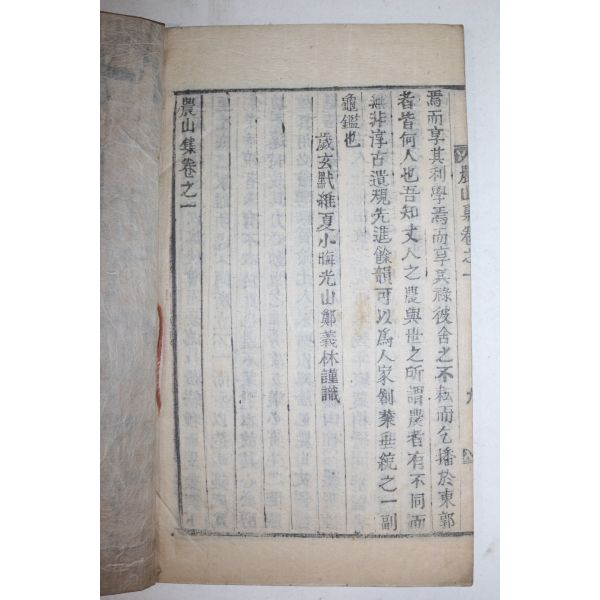 農山集卷之一
焉而享其利學焉而享其祿彼舍之不耘而乞播於東郭
者皆何人也吾知丈人之農與世之所謂農者有不同而
無非淳古遺規先進餘韻可以爲人家創業垂統之一副
龜鑑也
歲玄默維夏小晦光山鄭義林謹識
農山集卷之一